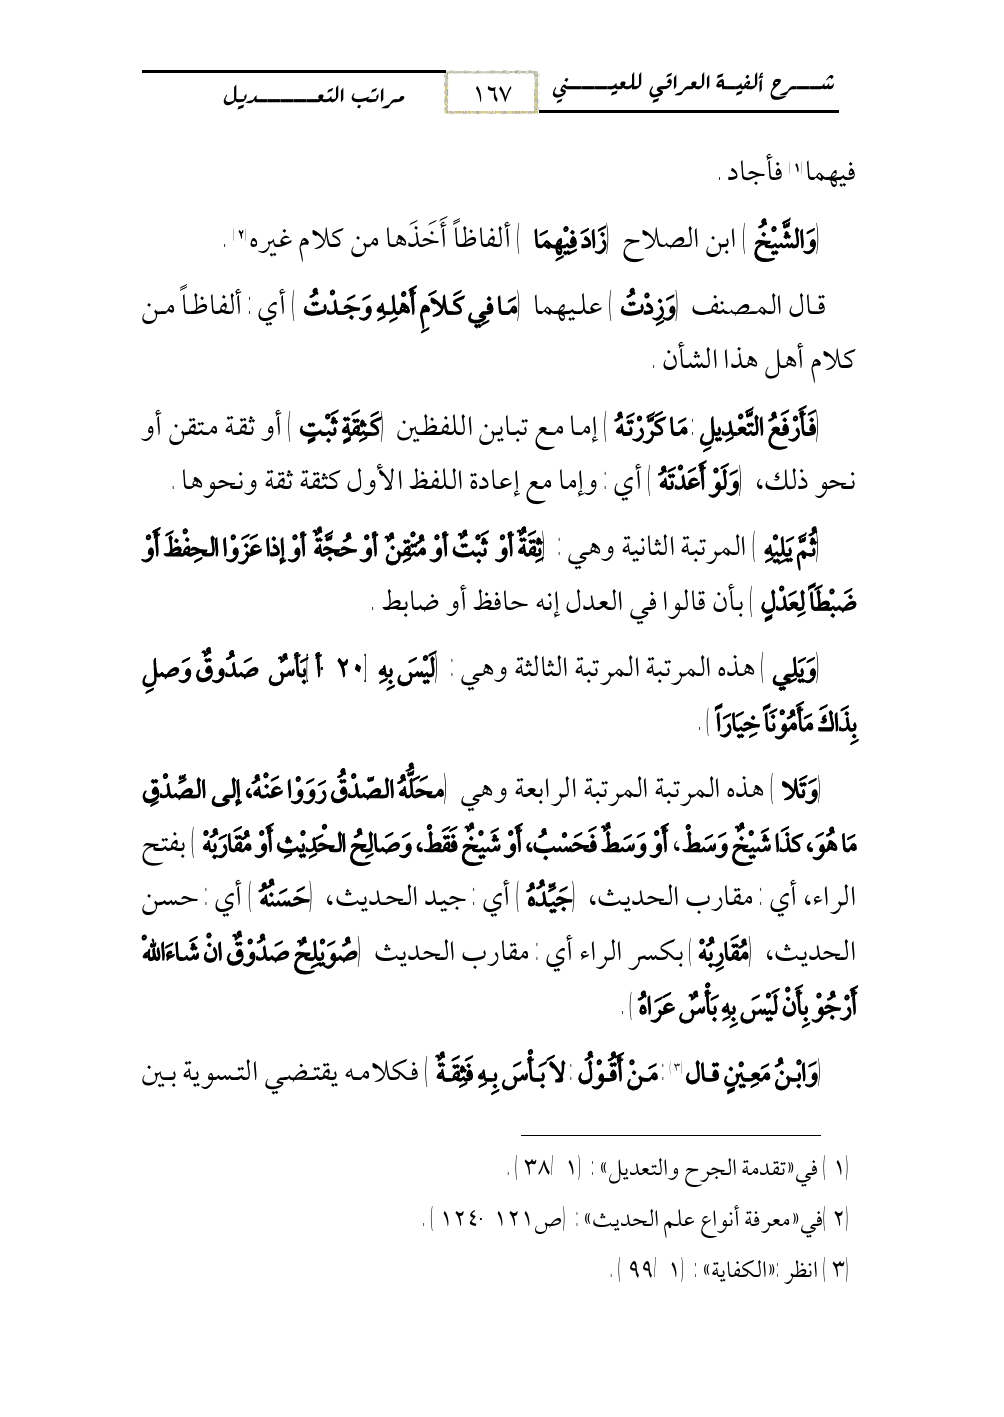 شـــرح ألفيـة العراقي للعينـــــي
١٦٧
مراتب التعـــــــديل
فيهما(١) فأجاد .
(وَالشَّيْخُ) ابن الصلاح (زَادَ فِيْهِمَا) ألفاظاً أَخَذَها من كلام غيره(٢) .
قال المصنف (وَزِدْتُ) عليهما (مَا في كَلاَمِ أَهْلِهِ وَجَدْتُ) أي : ألفاظاً من
كلام أهل هذا الشأن .
(فَأَرْفَعُ التَّعْدِيلِ : مَا كَرَّرْتَهُ) إما مع تباين اللفظين (كَثِقَةٍ ثَبْتٍ) أو ثقة متقن أو
نحو ذلك، (وَلَوْ أَعَدْتَهُ) أي : وإما مع إعادة اللفظ الأول كثقة ثقة ونحوها .
(ثُمَّ يَلِيْهِ) المرتبة الثانية وهي : (ثِقَةٌ أوْ ثَبْتٌ أوْ مُتْقِنٌ أوْ حُجَّةٌ أوْ إذا عَزَوْا الحِفْظَ أَوْ
ضَبْطَاً لِعَدْلٍ) بأن قالوا في العدل إنه حافظ أو ضابط .
(وَيَلِي) هذه المرتبة المرتبة الثالثة وهي : (لَيْسَ بِهِ [٢٠ أ] بَأسٌ صَدُوقٌ وَصلِ
بِذَاكَ مَأْمُوْنَاً خِيَارَاً) .
(وَتَلا) هذه المرتبة المرتبة الرابعة وهي (محَلُّهُ الصّدْقُ رَوَوْا عَنْهُ، إلى الصِّدْقِ
مَا هُوَ، كذَا شَيْخٌ وَسَطْ، أَوْ وَسَطٌ فَحَسْبُ، أَوْ شَيْخٌ فَقَطْ، وَصَالِحُ الحَدِيْثِ أَوْ مُقَارَبُهْ) بفتح
الراء، أي : مقارب الحديث، (جَيِّدُهُ) أي : جيد الحديث، (حَسَنُهُ) أي : حسن
الحديث، (مُقَارِبُهْ) بكسر الراء أي : مقارب الحديث (صُوَيْلِحٌ صَدُوْقٌ انْ شَاءَاللهْ
أَرْجُوْ بِأَنْ لَيْسَ بِهِ بَأْسٌ عَرَاهُ) .
(وَابْنُ مَعِيْنٍ قال(٣) : مَنْ أَقُوْلُ : لاَ بَأْسَ بِهِ فَثِقَةٌ) فكلامه يقتضي التسوية بين
(١) في«تقدمة الجرح والتعديل» : (١/ ٣٨).
(٢) في«معرفة أنواع علم الحديث» : (ص١٢١-١٢٤).
(٣) انظر :«الكفاية» : (١/ ٩٩).